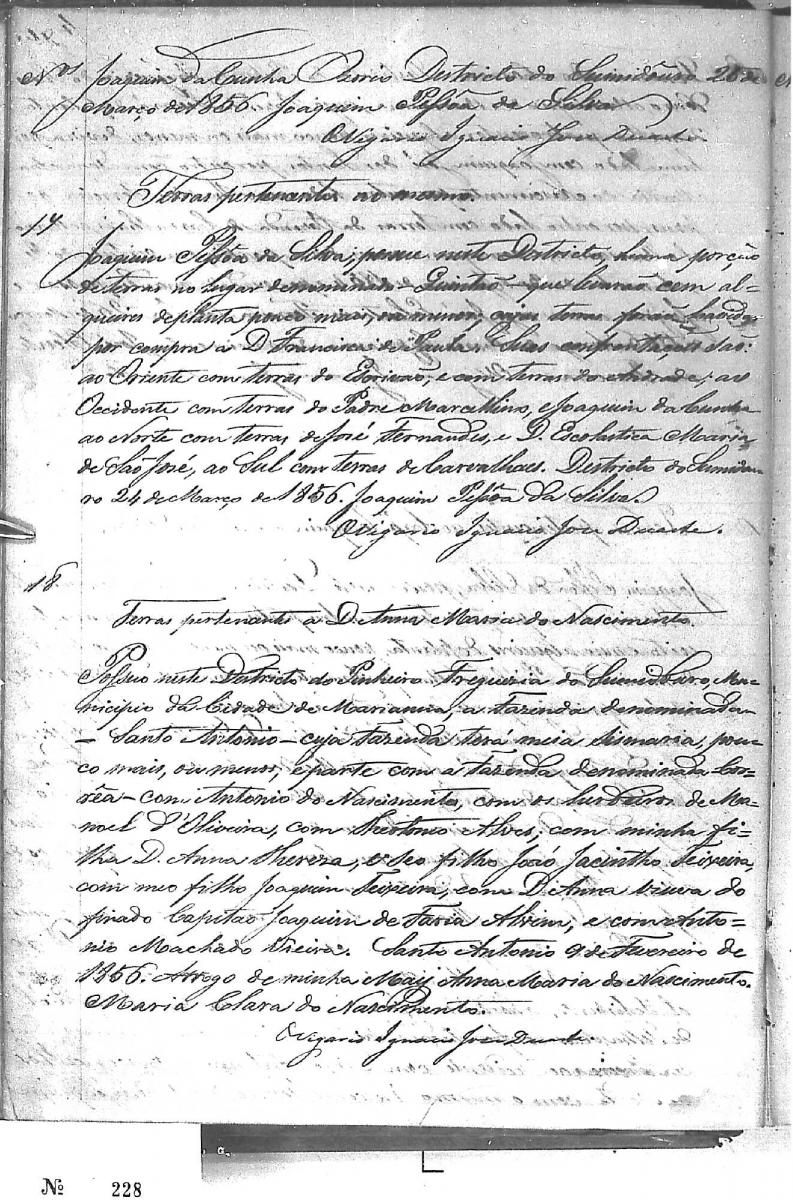 Nos
Joaquim da Cunha Ozorio Districto do Sumidouro 26 de
Março de 1856 Joaquim Pessôa da Silva
O Vigario Ignacio Jose Duarte
Terras pertencentes ao mesmo.
17
Joaquim Pessôa da Silva, possue neste Districto, huma porção
de terras no lugar denominado - Quintão - que levarão cem al-
queires de planta pouco mais, ou menos, cujas terras forão havidas
por compra a D. Francisca de Paula. Suas confrontações são:
ao Oriente com terras do Escrivão, e com terras do Andrade; ao
Occidente com terras do Padre Marcellino, e Joaquim da Cunha
ao Norte com terras de José Fernandes, e D. Escolastica Maria
de São José, ao Sul com terras de Carvalhaes. Districto do Sumidou-
ro 24 de Março de 1856. Joaquim Pessôa da Silva.
O Vigario Ignacio Jose Duarte.
18.
Terras pertencentes a D. Anna Maria do Nascimento.
Possuo neste Districto do Pinheiro Freguezia do Sumidouro, Mu-
nicipio da Cidade de Marianna, a Fazenda denominada
- Santo Antonio - cuja Fazenda terá meia sismaria, pou-
co mais, ou menos, e parte com a Fazenda denominada Cor-
rêa - com Antonio do Nascimento, com os herdeiros de Ma-
noel d'Oliveira, com Theotonio Alves; com minha fi-
lha D. Anna Thereza, e seo filho João Jacintho Teixeira,
com meo filho Joaquim Teixeira, com D. Anna viuva do
finado Capitão Joaquim de Faria Alvim, e com Anto-
nio Machado Vieira. Santo Antonio 9 de Fevereiro de
1856. Arrogo de minha Maij Anna Maria do Nascimento.
Maria Clara do Nascimento.
O Vigario Ignacio Jose Duarte
Nº 228